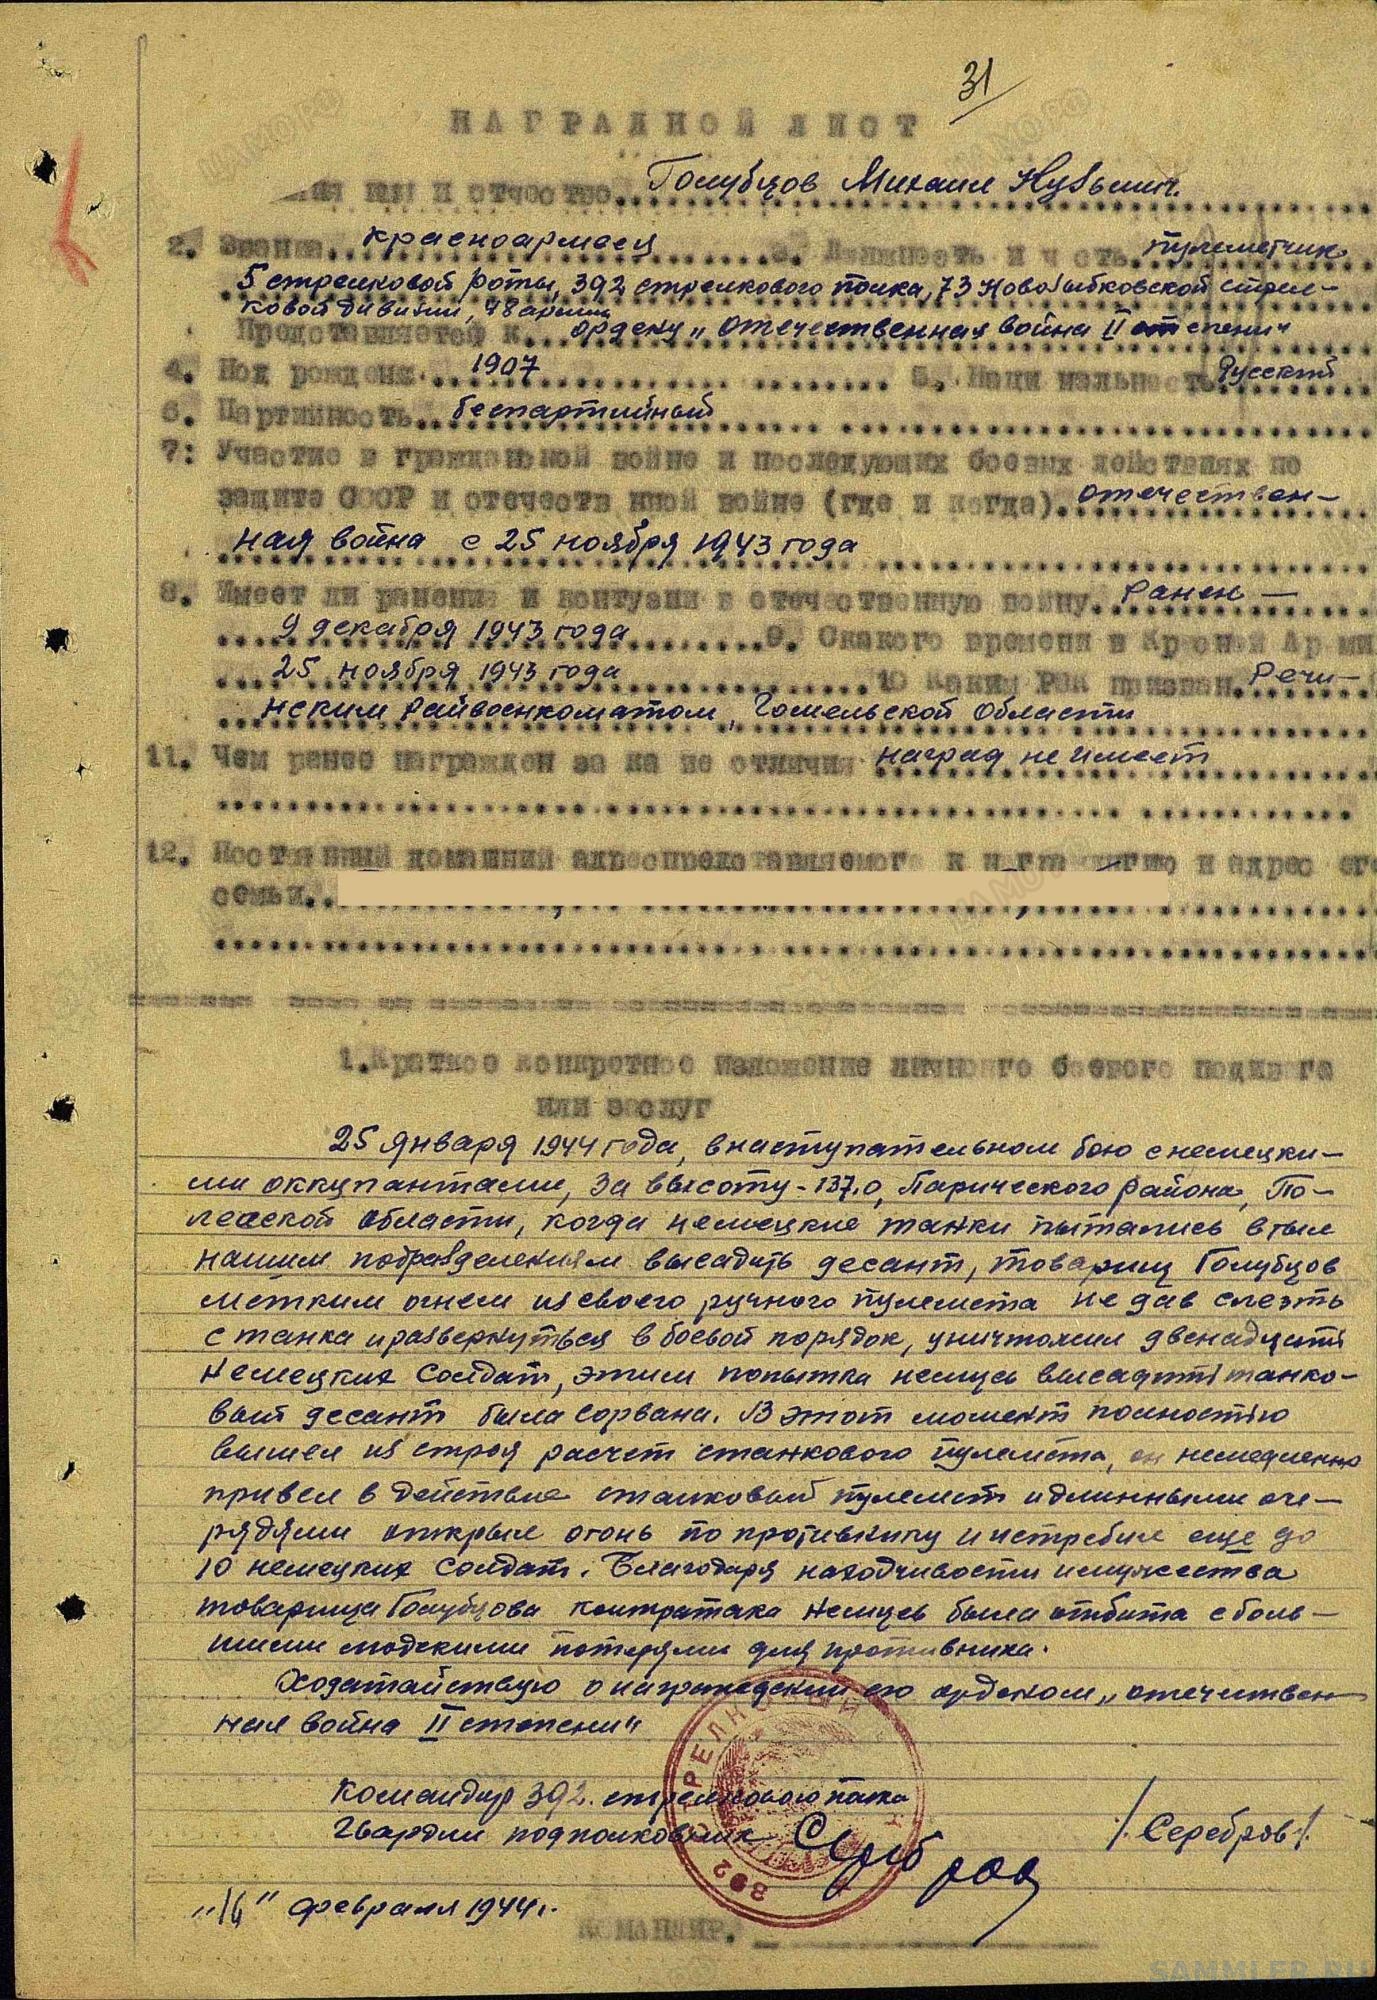 31
НАГРАДНОЙ ЛИСТ
имя и отчество Голубцов Михаил Кузьмич.
2. Звание красноармеец 3. Должность и часть пулеметчик
5 стрелковой роты, 392 стрелкового полка, 73 Новозыбковской стрел-
ковой дивизии, 48 армии
Представляется к ордену „отечественная война II степени
4. Год рождения 1907 5. Национальность Русский
6. Партийность беспартийный
7: Участие в гражданской войне и последующих боевых действиях по
защите СССР и отечественной войне (где и когда) отечествен-
ная война с 25 ноября 1943 года
8. Имеет ли ранения и контузии в отечественную войну Ранен -
9 декабря 1943 года 9. Скакого времени в Красной Арми
25 ноября 1943 года 10 Каким РВК призван Речи-
нским Райвоенкоматом, Гомельской области
11. Чем ранее награжден за какие отличия наград не имеет
12. Постоянный домашний адрес представляемого к награждению и адрес его
семьи
1. Краткое конкретное изложение личного боевого подвига
или заслуг
25 января 1944 года, в наступательном бою с немецки-
ми оккупантами, за высоту - 137.0, Парического района, По-
лесской области, когда немецкие танки пытались в тыл
нашим подразделениям высадить десант, товарищ Голубцов
метким огнем из своего ручного пулемета не дав слезть
с танка и развернуться в боевой порядок, уничтожил двенадцать
немецких солдат, этим попытка немцев высадить танко-
вый десант была сорвана. В этот момент полностью
вышел из строя расчет станкового пулемета, он немедленно
привел в действие станковый пулемет и длинными оче-
рядями открыл огонь по противнику и истребил еще до
10 немецких солдат. Благодаря находчивости и мужества
товарища Голубцова контратака немцев была отбита с боль-
шими людскими потерями для противника.
Ходатайствую о награждении его орденом „отечествен-
ная война II степени"
Командир 392 стрелкового полка
Гвардии подполковник Серебров /Серебров/.
392 СТРЕЛКОВЫЙ
„16" февраля 1944 г.
КОМАНДИР.
SAMMLER.RU